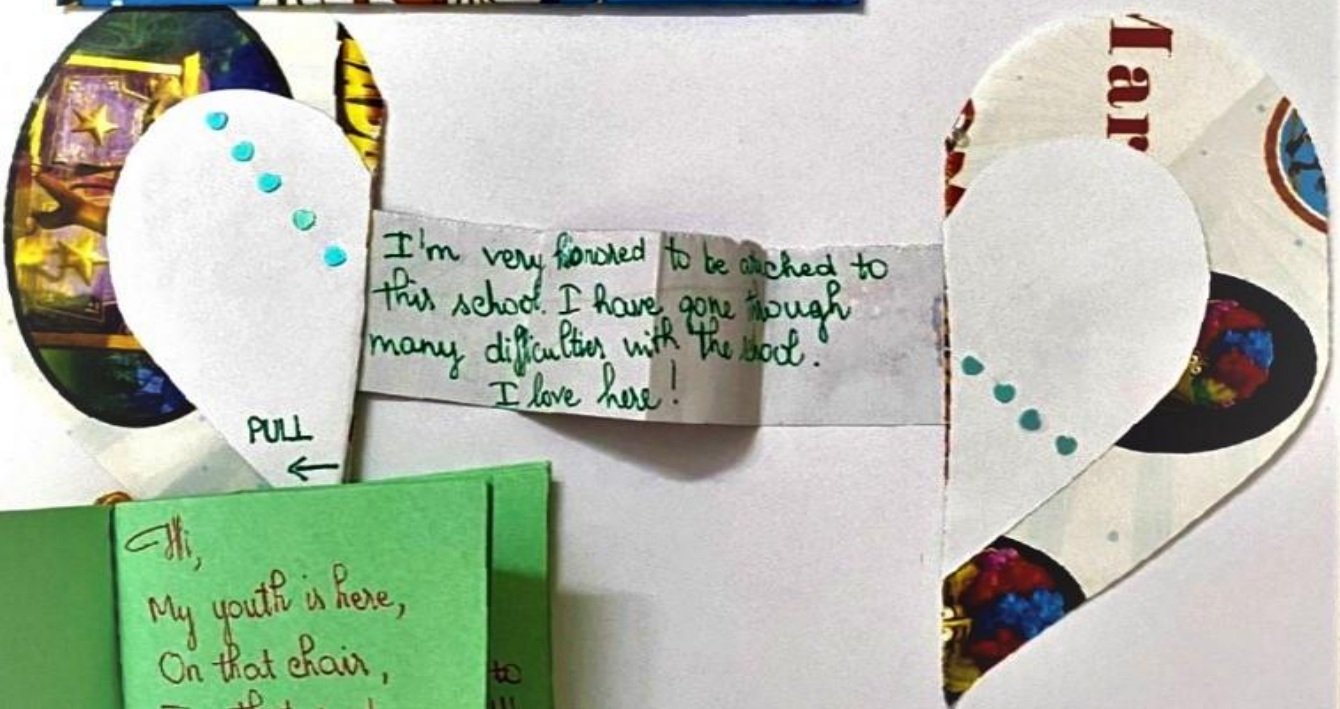 Mar
I'm very honored to be attached to
this school. I have gone though
many difficulties with the school.
I love here!
PULL
Hi,
My youth is here,
On that chair,
to